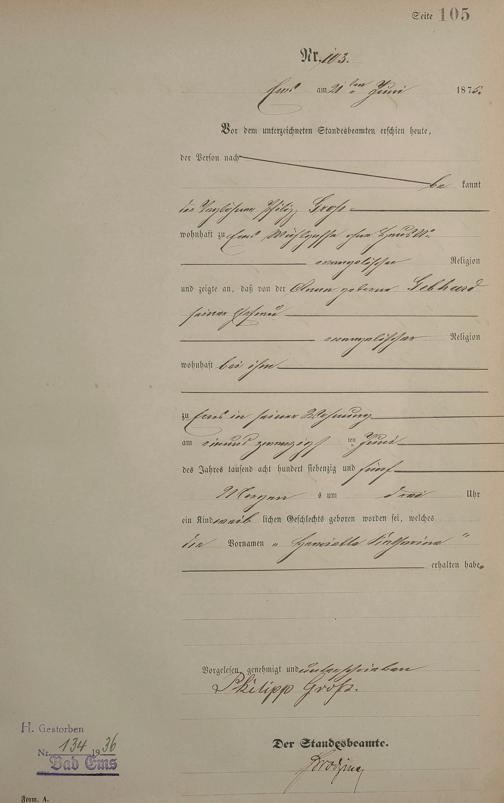 Seite 105
Nr. 103.
Ems am 21 ten Juni 1875.
Vor dem unterzeichneten Standesbeamten erschien heute,
der Person nach
be kannt
der Taglöhner Philipp Groß
wohnhaft zu Ems Mühlgasse ohne Haus N.
evangelischer Religion
und zeigte an, daß von der Anna geborne Gebhard
seiner Ehefrau
evangelischer Religion
wohnhaft bei ihm
zu Ems in seiner Wohnung
am einundzwanzigs ten Juni
des Jahres tausend acht hundert siebenzig und fünf
Morgen s um drei Uhr
ein Kind weib lichen Geschlechts geboren worden sei, welches
die Vornamen „Henriette Katharina“
erhalten habe.
Vorgelesen, genehmigt und unterschrieben
Philipp Groß.
H. Gestorben
Nr. 134 1936
Bad Ems
Der Standesbeamte.
Form. A.